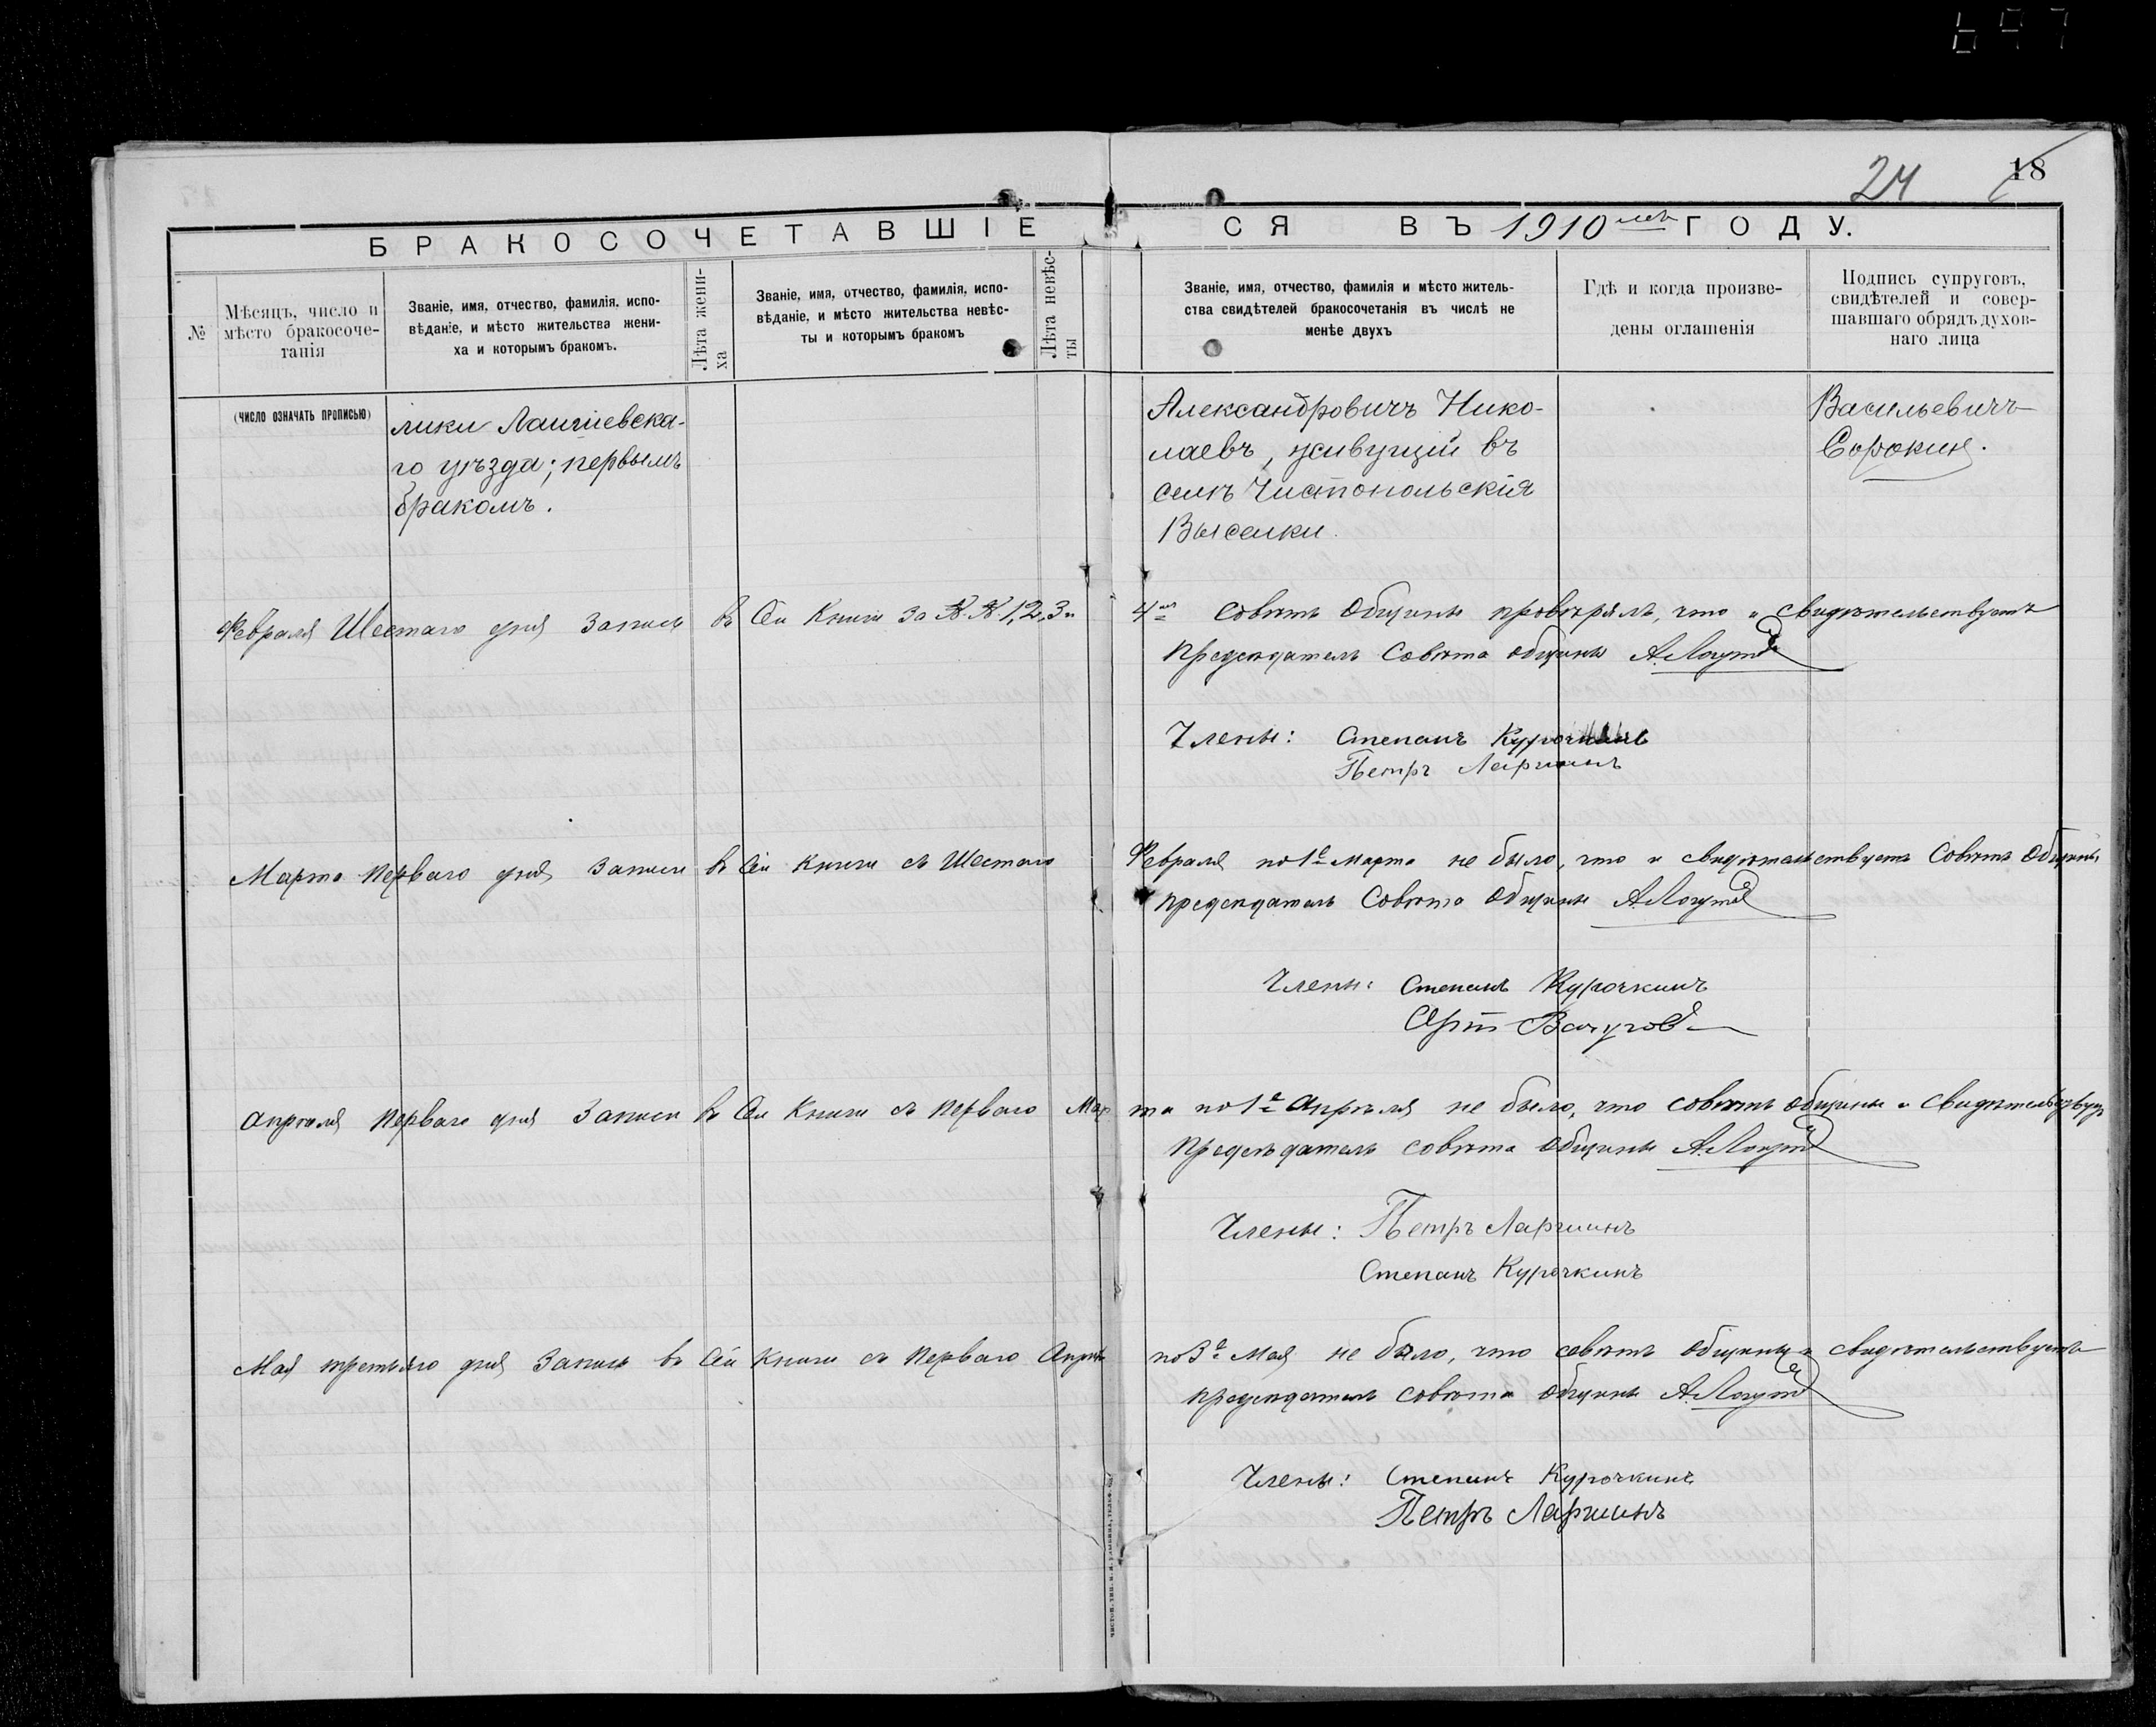 24 18
БРАКОСОЧЕТАВШІЕ СЯ ВЪ 1910 мъ ГОДУ.
№
Мѣсяцъ, число и
мѣсто бракосоче-
танія
Званіе, имя, отчество, фамилія, испо-
вѣданіе, и мѣсто жительства жени-
ха и которымъ бракомъ.
Лѣта жени-
ха
Званіе, имя, отчество, фамилія, испо-
вѣданіе, и мѣсто жительства невѣс-
ты и которымъ бракомъ
Лѣта невѣс-
ты
Званіе, имя, отчество, фамилія и мѣсто житель-
ства свидѣтелей бракосочетанія въ числѣ не
менѣе двухъ
Гдѣ и когда произве-
дены оглашенія
Подпись супруговъ,
свидѣтелей и совер-
шавшаго обрядъ духов-
наго лица
(ЧИСЛО ОЗНАЧАТЬ ПРОПИСЬЮ)
лики Лаишевска-
го уѣзда; первымъ
бракомъ.
Александровичъ Нико-
лаевъ, живущій въ
селѣ Чистопольскія
Выселки.
Васильевичъ
Сорокинъ.
Февраля Шестаго дня Записи въ Сей Книги За №№ 1, 2, 3 и 4 Совѣтъ Общины провѣрялъ, что и свидѣтельствуетъ
Предсѣдатель Совѣта Общины А. Логутов
Члены: Степанъ Курочкинъ
Петръ Ларшинъ
Марта Перваго дня Записи въ Сей Книги съ Шестаго Февраля по 1е Марта не было, что и свидѣтельствуетъ Совѣтъ Общины
Предсѣдатель Совѣта Общины А. Логутов
Члены: Степанъ Курочкинъ
Арт
Апрѣля Перваго дня Записи въ Сей Книги съ Перваго Марта по 1е Апрѣля не было, что совѣтъ общины и свидѣтельствуетъ
Предсѣдатель совѣта Общины А. Логутов
Члены: Петръ Ларшинъ
Степанъ Курочкинъ
Мая третьяго дня Записи въ Сей Книги съ Перваго Апрѣ по 3е Мая не было, что совѣтъ Общины и свидѣтельствуетъ
Предсѣдатель совѣта Общины А. Логутов
Члены: Степанъ Курочкинъ
Петръ Ларшинъ